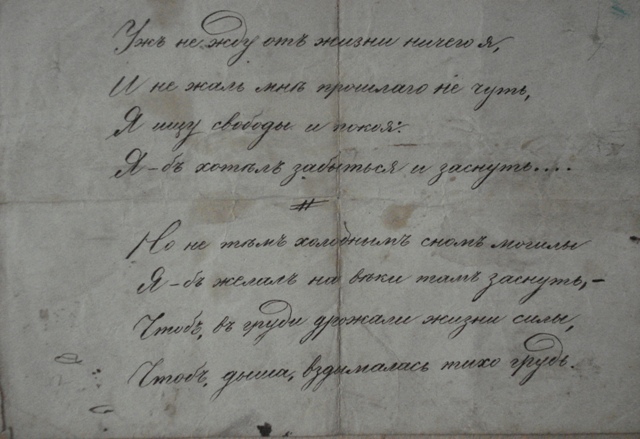 Ужъ не жду отъ жизни ничего я,
И не жаль мнѣ прошлаго не чуть,
Я ищу свободы и покоя:
Я-бъ хотѣлъ забыться и заснуть....
Но не тѣмъ холоднымъ сномъ могилы
Я-бъ желалъ на вѣки тамъ заснуть,-
Чтобъ, въ груди дрожали жизни силы,
Чтобъ, дыша, вздымалась тихо грудь.